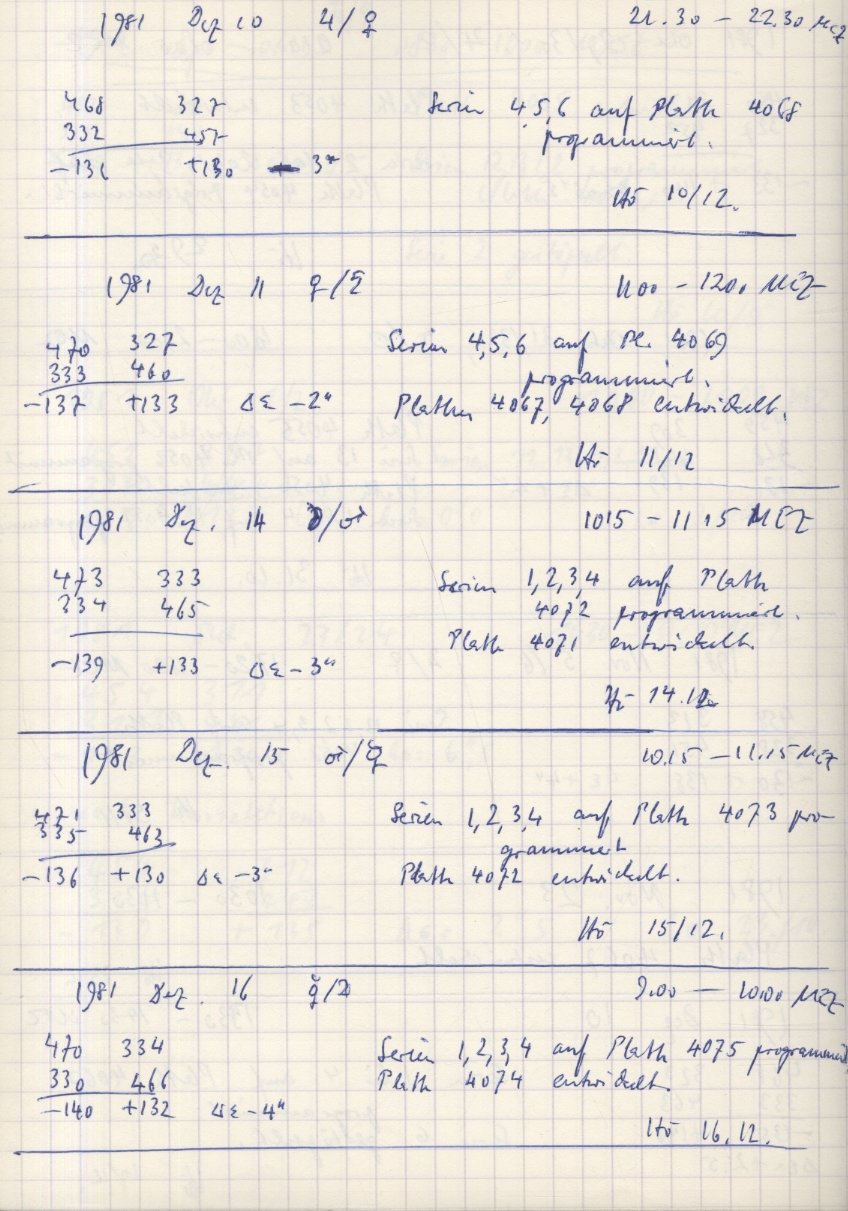 1981 Dez 10 ♃/♀ 21.30 – 22.30 MEZ
468 327 Serien 4,5,6 auf Platte 4068
332 457 programmiert.
-136 +130 - 3"
Hö 10/12.
1981 Dez 11 ♀/♄ 1100 - 1200 MEZ
470 327 Serien 4,5,6 auf Pl. 4069
333 460 programmiert.
-137 +133 Δε -2" Platten 4067, 4068 entwickelt.
Hö 11/12
1981 Dez. 14 ☽/♂ 1015 - 11.15 MEZ
473 333 Serien 1,2,3,4 auf Platte
334 465 4072 programmiert.
Platte 4071 entwickelt.
-139 +133 Δε -3"
Hö 14.12.
1981 Dez. 15 ♂/☿ 10.15 – 11.15 MEZ
471 333 Serien 1,2,3,4 auf Platte 4073 pro-
335 463 grammiert
-136 +130 Δε -3" Platte 4072 entwickelt.
Hö 15/12.
1981 Dez. 16 ☿/♃ 9.00 — 10.00 MEZ
470 334 Serien 1,2,3,4 auf Platte 4075 programmiert
330 466 Platte 4074 entwickelt.
-140 +132 Δε -4"
Hö 16.12.